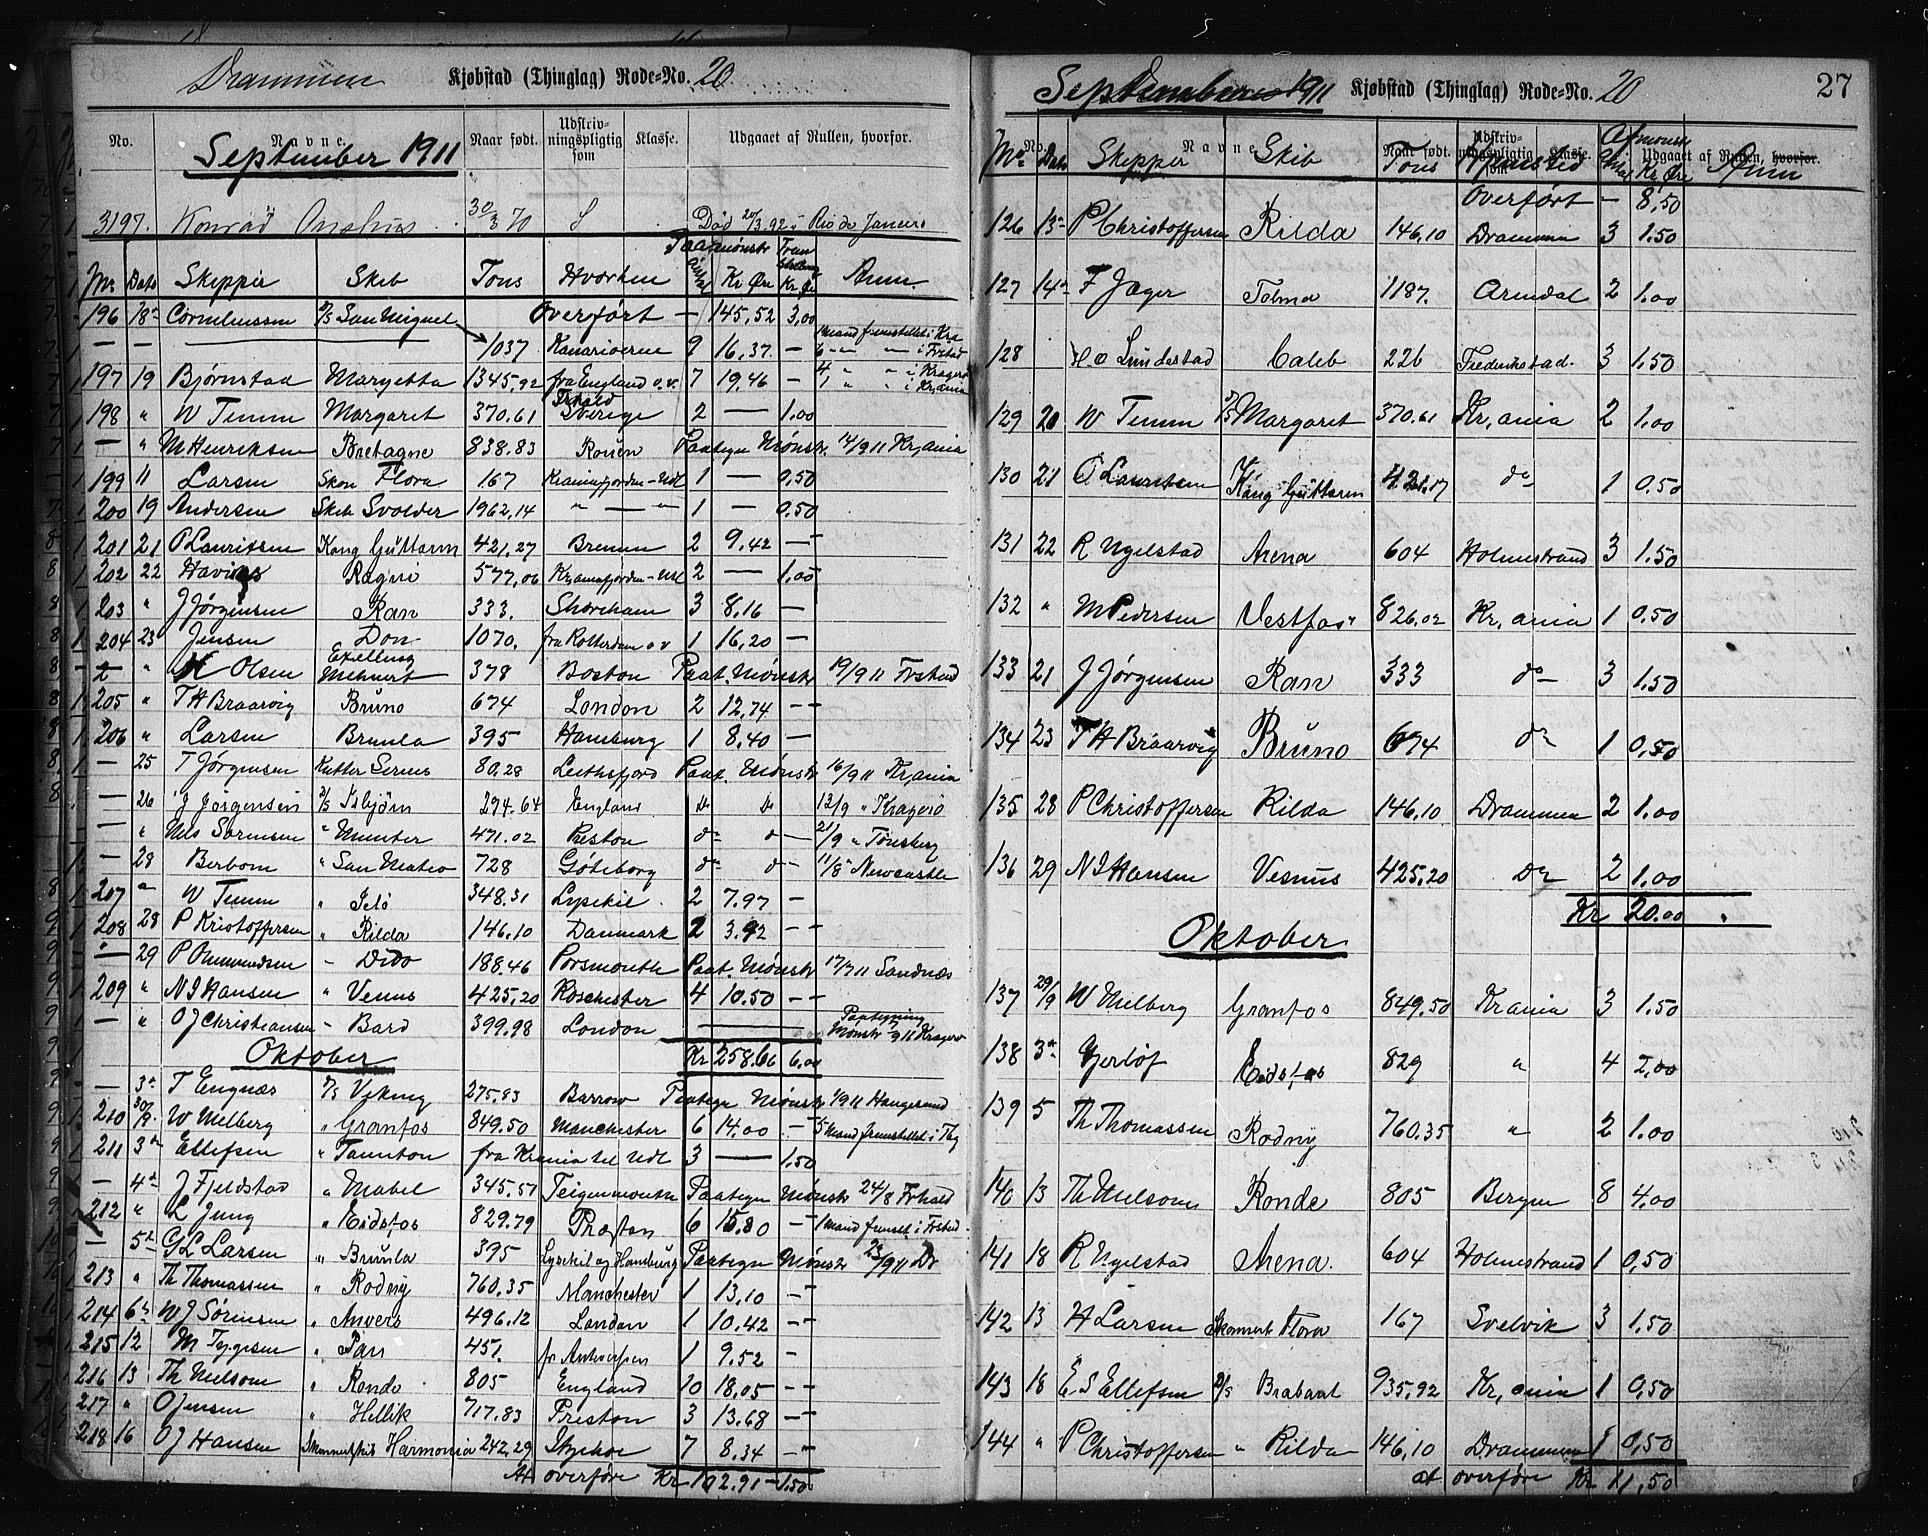 Drammen Kjøbstad (Thinglag) Rode-No. 20
No. Navne. Naar født. Udskrivningspligtig som Klasse. Udgaaet af Rullen, hvorfor.
September 1911
3197. Konrad 30/3 70 S Død 20/3.92 i Rio de Janeiro
No Dato Skipper Skib Tons Hvorhen Paamønstr Antal Kr Øre Kr Øre Anm
196 18de Corneliussen D/S San Miguel Overført — 145,52 3,00
— — 1037 Kanariøerne 9 16,37 — 1 Mand fremstillet i Kra 6 " " i Frstad
197 19 Bjørnstad Margetta 1345,92 fra England o.v. 7 19,46 — 4 " " i Kragerø 1 " " i Kr,ania
198 " W Temm Margaret 370.61 Frhald Sverige 2 — 1.00
— " M Henriksen Bretagne 838.83 Rouen Paategn Mønstr. 14/9 11 Kr,ania
199 11 Larsen Skon Flora 167 Kraniafjorden - Udl 1 — 0,50
200 19 Andersen Skib Svolder 1962,14 " — " 1 — 0.50
201 21 O Lauritsen Kong Guttorm 421,27 Bremen 2 9,42 —
202 22 Ragni 577,06 Kr,aniafjorden - Udl 2 — 1.00
203 " J Jørgensen Ran 333. Shoreham 3 8,16 —
204 23 Jensen Don 1070. fra Rotterdam o v 1 16,20 —
— " H Olsen 378 Boston Paat. Mønstr 19/9 11 Frstad
205 " T H Braarvig Bruno 674 London 2 12,74 —
206 " Larsen Brunla 395 Hamburg 1 8,40 —
— 25 T Jørgensen Kutter 80,28 Leithsfjord Paat. Mønstr 16/9 11 Kr,ania
— 26 J Jørgensen D/S Isbjørn 294.64 England do do 12/9 " Kragerø
— " Nils Sørensen " Munter 471.02 Preston do do 21/9 " Tønsberg
— 28 Berbom " San Mateo 728 Göteborg do do 11/8 " Newcastle
207 " W Temm " 348.31 Lysekil 2 7.97 —
208 28 P Kristoffersen " Rilda 146.10 Danmark 2 3.92 —
— 29 P " Dido 188.46 Porsmouth Paat. Mønstr 17/7 11 Sandnæs
209 " N J Hansen " Venus 425,20 Rochester 4 10.50 —
— " O J Christiansen " Bard 399.98 London — Paategning Mønstr 9 11 Kragerø
Kr 258.66 6,00
Oktober
— 3de T Engnæs D/S Viking 275.83 Barrow Paategn Mønstr 1/9 11 Haugesund
210 30/9 W Melberg " Granfos 849.50 Manchester 6 14.00 — 5 Mand fremstillet i Tbg
211 3de Ellefsen " Taunton fra Krania til Udl 3 — 1.50
— 4de J Fjeldstad " Mabel 345,57 Teigenmouth Paategn Mønstr 24/8 Frhald
212 " L Jung " Eidsfos 829.79 Præston 6 15.80 — 1 Mand fremst. i Frstad
— 5te G L Larsen " Brunla 395 Lysekil og Hamburg Paategn Mønstr 23/9 11 Dr
213 " Th Thomassen " Rodny 760.35 Manchester 1 13,10 —
214 6te M J Sørensen " Anvers 496.12 London 1 10.42 —
215 12 M Tygesen " Pan 451. fr Antwerpen 1 9.52 —
216 13 Th Nielsom " Ronde 805 England 10 18,05 —
217 " O Jensen " Hellik 717.83 Preston 3 13.68 —
218 16 O J Hansen Skonnertskib Harmonia 242,29 7 8.34 —
At overføre Kr 102.91 1,50
September 1911 Kjøbstad (Thinglag) Rode-No. 20 27
No. Navne Naar født. Udskrivningspligtig som Klasse. Udgaaet af Rullen, hvorfor.
No Dato Skipper Skib Tons Hjemsted Afmønstr Antal Kr Øre Anm
Overført — 8,50
126 13de P Christoffersen Rilda 146,10 Drammen 3 1.50
127 14de F Jæger Telma 1187. Arendal 2 1.00
128 H O Lundestad Caleb 226 Frederikstad. 3 1,50
129 20 W Temm D/S Margaret 370.61 Kr,ania 2 1,00
130 21 O Lauritsen Kong Guttorm 421,17 do 1 0,50
131 22 R Nyelstad Arena 604 Holmestrand 3 1.50
132 " M Pedersen Vestfos 826,02 Kr,ania 1 0,50
133 21 J Jørgensen Ran 333 do 3 1.50
134 23 T H Braarvig Bruno 674 do 1 0,50
135 28 P Christoffersen Rilda 146,10 Drammen 2 1.00
136 29 N J Hansen Venus 425,20 Do 2 1.00
Kr 20.00
Oktober
137 29/9 W Melberg Granfos 849.50 Krania 3 1.50
138 3de Gjerløf Eidsfos 829 " 4 2,00
139 5 Th Thomassen Rodny 760.35 " 2 1.00
140 13 Th Nielsom Ronde 805 Bergen 8 4.00
141 18 R Nyelstad Arena. 604 Holmestrand 1 0,50
142 13 H Larsen Skonnert Flora 167 Svelvik 3 1,50
143 18 E S Ellefsen D/S Brabant 935,92 Kr,ania 1 0,50
144 " P Christoffersen " Rilda 146,10 Drammen 1 0,50
at overføre Kr 11,50